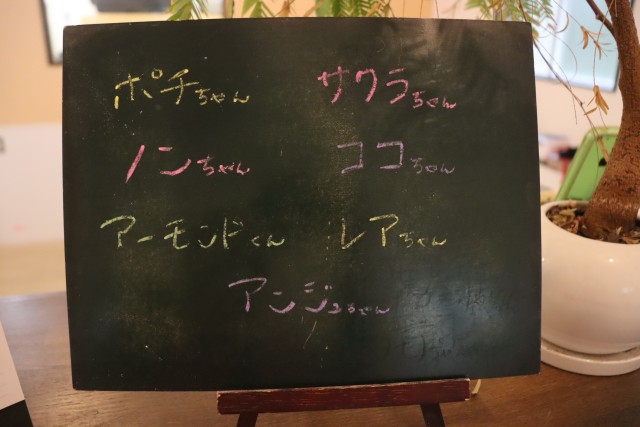 ポチちゃん サクラちゃん
ノンちゃん ココちゃん
アーモンドくん レアちゃん
アンジュちゃん